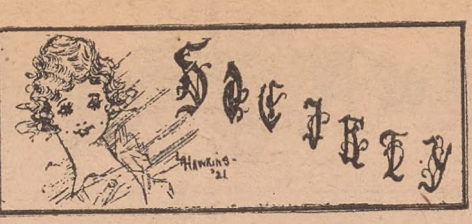 SOCIETY
HAWKINS
'21